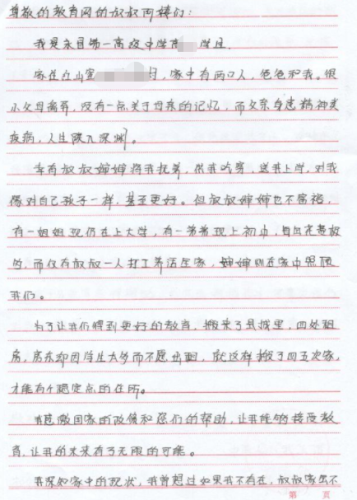 尊敬的教育网的叔叔阿姨们:
我是来自第一高级中学的 学生
家在, 家中有两口人, 爸爸和我。很
小父母离异, 没有一点关于母亲的记忆, 而父亲身患精神类
疾病, 人生陷入深渊。
幸有叔叔婶婶将我抚养, 供我吃穿, 送我上学, 对我
像对自己孩子一样, 甚至更好。但叔叔婶婶也不富裕,
有一姐姐现仍在上大学, 有一弟弟现上初中, 皆尚在
, 而仅有叔叔一人打工养活全家, 婶婶则在家中照顾
我们。
为了让我们得到更好的教育, 搬来了县城里, 四处租
房, 房东却因学生太多而不愿出租, 就这样搬了四五次家,
才能有个稳定点的住所。
我感激国家的政策和您们的帮助, 让我能够接受教
育, 让我的未来有了无限的可能。
我深知家中的现状, 我曾想过如果我不存在, 叔叔家也不
第 页